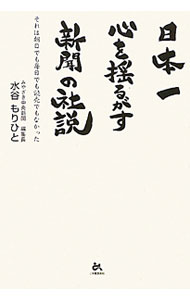 日本一
心を揺るがす
新聞の社説
それは朝日でも毎日でも読売でもなかった
みやざき中央新聞 編集長
水谷もりひと